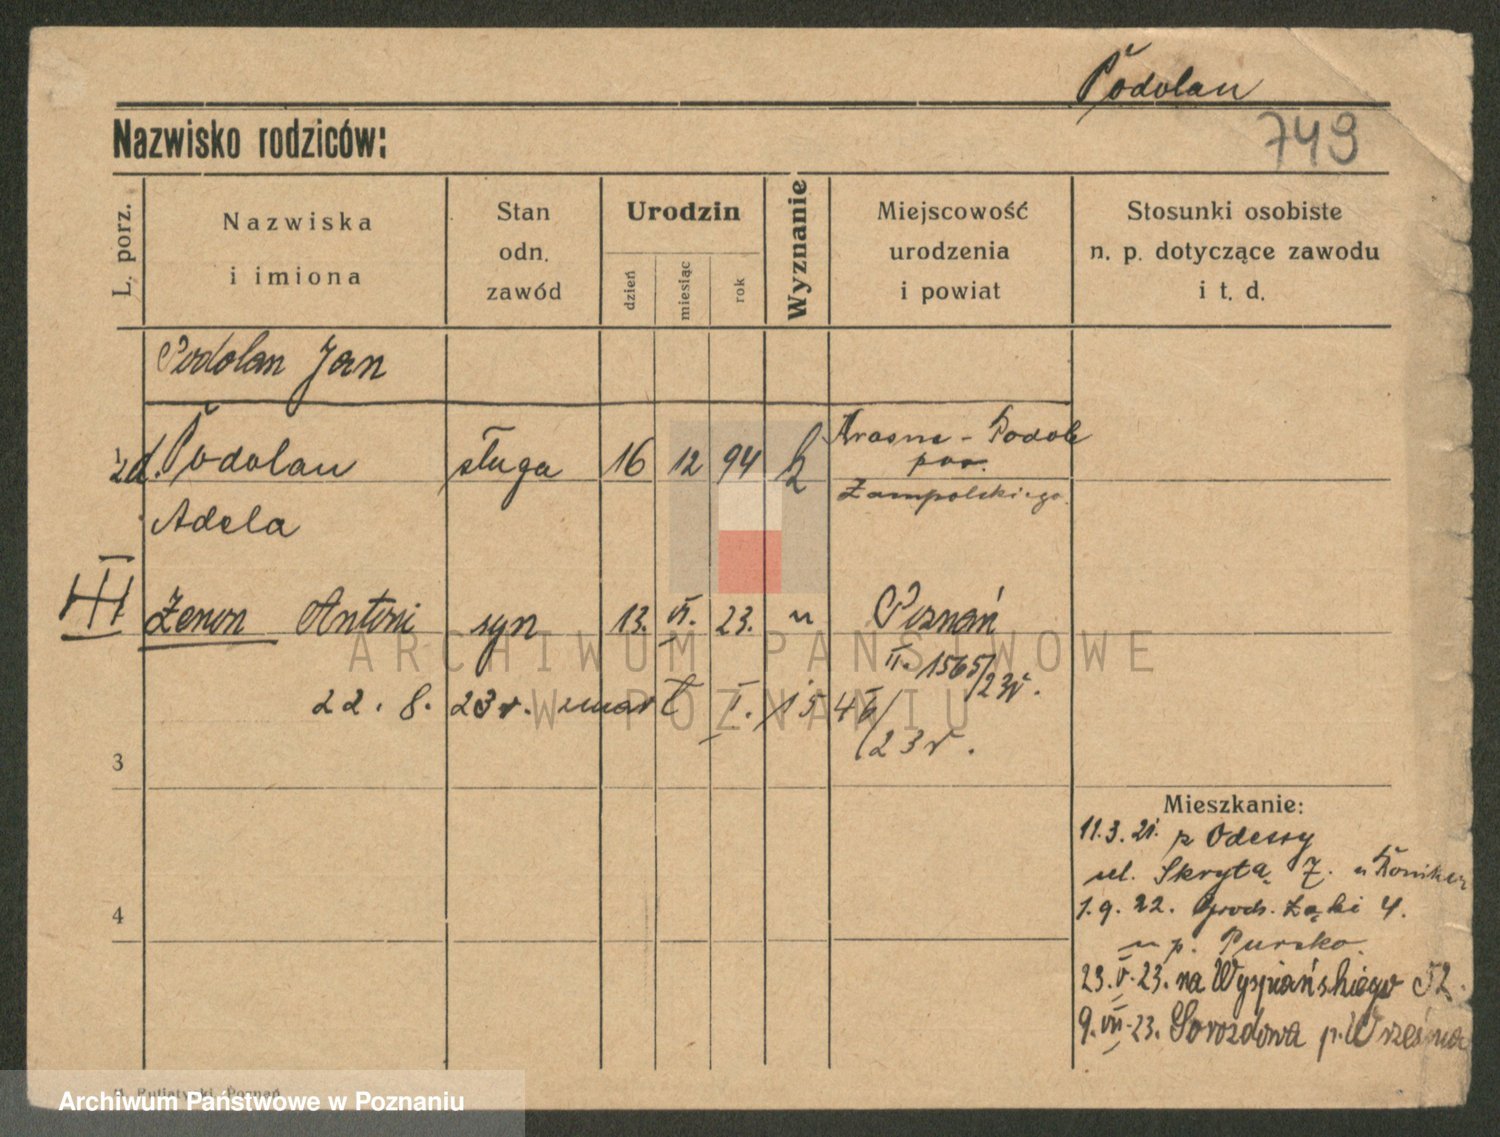 Podolan
749
Nazwisko rodziców:
L. porz.
Nazwiska
i imiona
Stan
odn.
zawód
Urodzin
dzień
miesiąc
rok
Wyznanie
Miejscowość
urodzenia
i powiat
Stosunki osobiste
n. p. dotyczące zawodu
i t. d.
Podolan Jan
Podolan sługa 16 12 94 Krasne - Podole
pow.
Adela Zampolskiego
III Zenon Antoni syn 13. VI. 23. " Poznań
II. 1565/23r.
22. 8. 23r. zmarł I. 1546/23r.
3
4
Mieszkanie:
11.3.21. z Odessy
ul. Skryta 7. u
1.9.22. Grob. Łąki 4.
u p.
23.V.23. na Wyspiańskiego 52.
9.VII.23. p. Września
A. Putiatycki, Poznań
ARCHIWUM PAŃSTWOWE
W POZNANIU
Archiwum Państwowe w Poznaniu